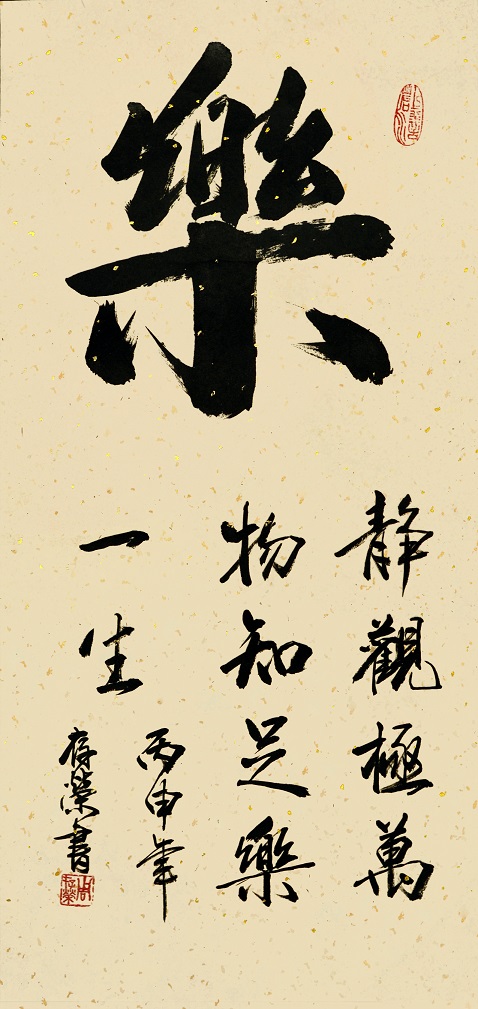 樂
靜觀極萬
物知足樂
一生
丙申年
存榮書